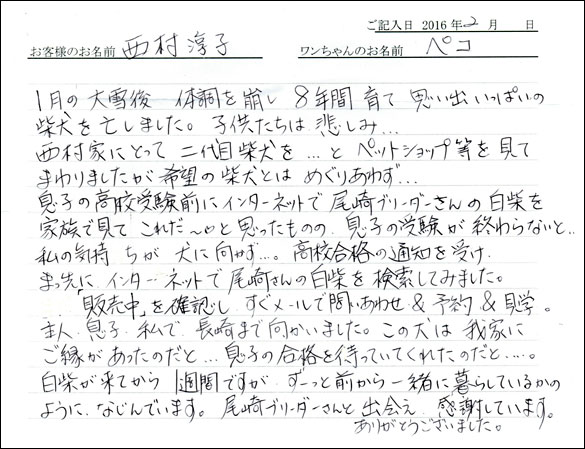 ご記入日 2016年2月 日
お客様のお名前 西村淳子 ワンちゃんのお名前 ペコ
1月の大雪後 体調を崩し 8年間育て 思い出いっぱいの
柴犬を亡しました。子供たちは悲しみ…
西村家にとって 二代目柴犬を…と ペットショップ等を見て
まわりましたが希望の柴犬とは めぐりあわず…
息子の高校受験前にインターネットで尾崎ブリーダーさんの白柴を
家族で見て これだ〜!!と思ったものの 息子の受験が終わらないと..
私の気持ちが 犬に向かず…。高校合格の通知を受け
まっ先に インターネットで尾崎さんの白柴を検索してみました。
「販売中」を確認し すぐメールで問いあわせ & 予約 & 見学。
主人、息子、私で、長崎まで向かいました。この犬は 我家に
ご縁があったのだと…息子の合格を待っていてくれたのだと…。
白柴が来てから 1週間ですが ずーっと前から一緒に暮らしているかの
ように、なじんでいます。尾崎ブリーダーさんと出会え 感謝しています。
ありがとうございました。